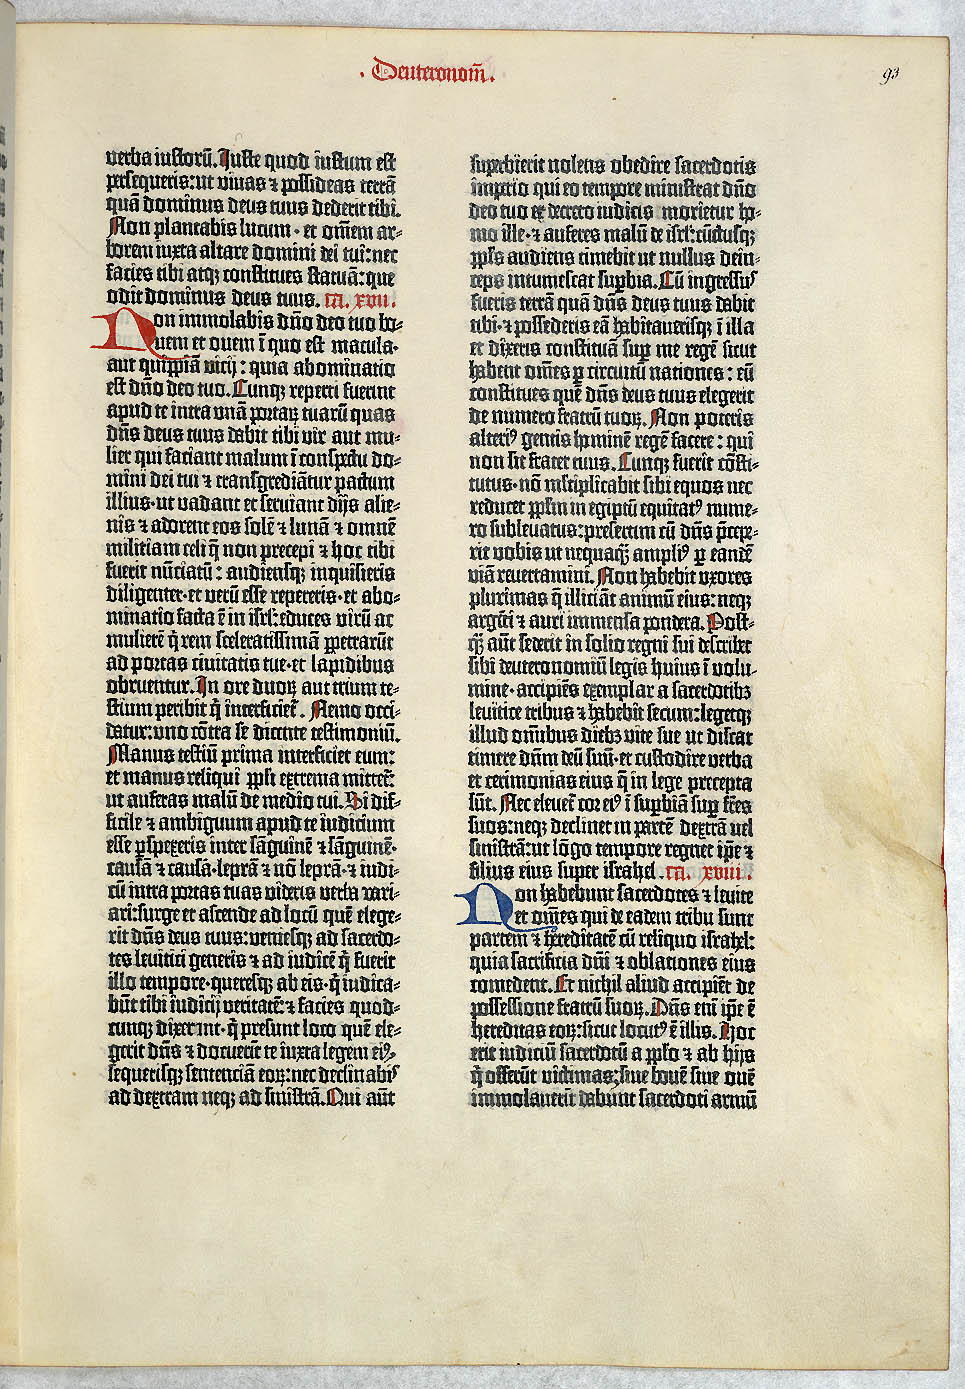 . Deuteronom̄ .
93
verba iustorū. Iuste quod iustum est
persequeris: ut vivas ⁊ possideas terrā
quā dominus deus tuus dederit tibi.
Non plantabis lucum · et om̄em ar⸗
borem iuxta altare domini dei tui: nec
facies tibi atqꝫ constitues statuā: que
odit dominus deus tuus. ca. xvii.
Non immolabis dn̄o deo tuo bo⸗
vem et ovem ī quo est macula·
aut quippiā vicij : quia abominatio
est dn̄o deo tuo. Cunqꝫ reperti fuerint
apud te intra unā portaꝝ tuarū quas
dn̄s deus tuus dabit tibi vir aut mu⸗
lier qui faciant malum ī conspectu do⸗
mini dei tui ⁊ transgrediātur pactum
illius· ut vadant et serviant dijs alie⸗
nis ⁊ adorent eos solē ⁊ lunā ⁊ omnē
militiam celi q̄ non precepi ⁊ hoc tibi
fuerit nūciatū : audiensqꝫ inquisieris
diligenter· et verū esse repereris· et abo⸗
minatio facta ē in isrl̄: educes virū ac
mulierē q̄ rem sceleratissimā ꝑpetrarūt
ad portas civitatis tue· et lapidibus
obruentur. In ore duoꝝ aut trium te⸗
stium peribit q̄ interficiet᷑. Nemo occi⸗
datur: uno cōtra se dicente testimoniū.
Manus testiū prima interficiet eum:
et manus reliqui ppl̄i extrema mittet᷑:
ut auferas malū de medio tui. Si dif⸗
ficile ⁊ ambiguum apud te iudicium
esse ꝑspexeris inter sāguinē ⁊ sāguinē·
causā ⁊ causā· leprā ⁊ nō leprā· ⁊ iudi⸗
cū intra portas tuas videris verba vari⸗
ari: surge et ascende ad locū quē elege⸗
rit dn̄s deus tuus: veniesqꝫ ad sacerdo⸗
tes levitici generis ⁊ ad iudicē q̄ fuerit
illo tempore· queresqꝫ ab eis· q̄ iudica⸗
būt tibi iudicij veritatē: ⁊ facies quod⸗
cunqꝫ dixerint· q̄ presunt loco quē ele⸗
gerit dn̄s ⁊ docuerīt te iuxta legem eiꝰ·
sequerisqꝫ sentenciā eoꝝ: nec declinabiſ
ad dextram neqꝫ ad sinistrā. Qui aūt
superbierit nolens obedire sacerdotis
imperio qui eo tempore ministrat dn̄o
deo tuo ex decreto iudicis morietur ho⸗
mo ille· ⁊ auferes malū de isrl̄: cūctusqꝫ
ppl̄s audiens timebit ut nullus dein⸗
ceps intumescat suꝑbia. Cū ingressuſ
fueris terrā quā dn̄s deus tuus dabit
tibi· ⁊ possederis eā habitaverisqꝫ ī illa
et dixeris constituā suꝑ me regē sicut
habent om̄es ꝑ circuitū nationes: eū
constitues quē dn̄s deus tuus elegerit
de numero fratrū tuoꝝ. Non poteris
alteriꝰ gentis hominē regē facere : qui
non sit frater tuus. Cunqꝫ fuerit cōsti⸗
tutus· nō mĺtiplicabit sibi equos nec
reducet ppl̄m in egiptū equitatꝰ nume⸗
ro sublevatus: presertim cū dn̄s p̄cepe⸗
rit vobis ut nequaqꝫ̄ ampliꝰ ꝑ eandē
viā revertamini. Non habebit uxores
plurimas q̄ illiciāt animū eius: neqꝫ
argēti ⁊ auri immensa pondera. Post⸗
qꝫ̄ aūt sederit in solio regni sui describet
sibi deuteronomiū legis huius ī volu⸗
mine· accipiēs exemplar a sacerdotibꝫ
levitice tribus ⁊ habebit secum: legetqꝫ
illud omnibus diebꝫ vite sue ut discat
timere dn̄m deū suū· et custodire verba
et cerimonias eius q̄ in lege precepta
sūt. Nec elevet᷑ cor eiꝰ ī suꝑbiā suꝑ fr̄es
suos: neqꝫ declinet in partē dextrā vel
sinistrā: ut lōgo tempore regnet ip̄e ⁊
filius eius super israhel. ca. xviii.
Non habebunt sacerdotes ⁊ levite
et om̄es qui de eadem tribu sunt
partem ⁊ hereditatē cū reliquo israhel:
quia sacrificia dn̄i ⁊ oblationes eius
comedent. Et nichil aliud accipiēt de
possessione fratrū suoꝝ. Dn̄s eni ip̄e ē
hereditas eoꝝ: sicut locutꝰ ē illis. Hoc
erit iudiciū sacerdotū a pplo ⁊ ab hijs
q̄ offerūt victimas: sive bovē sive ovē
immolaverit dabunt sacerdoti armū